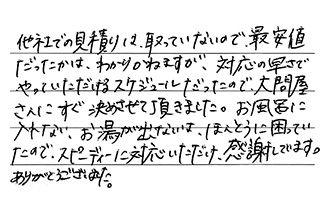 他社での見積りは、取っていないので、最安値
だったかは、わかりかねますが、対応の早さで
やっていただけるスケジュールだったので、大問屋
さんにすぐ決めさせて頂きました。お風呂に
入れない、お湯が出ないは、ほんとうに困ってい
たので、スピーディーに対応いただけ、感謝してます。
ありがとうございました。